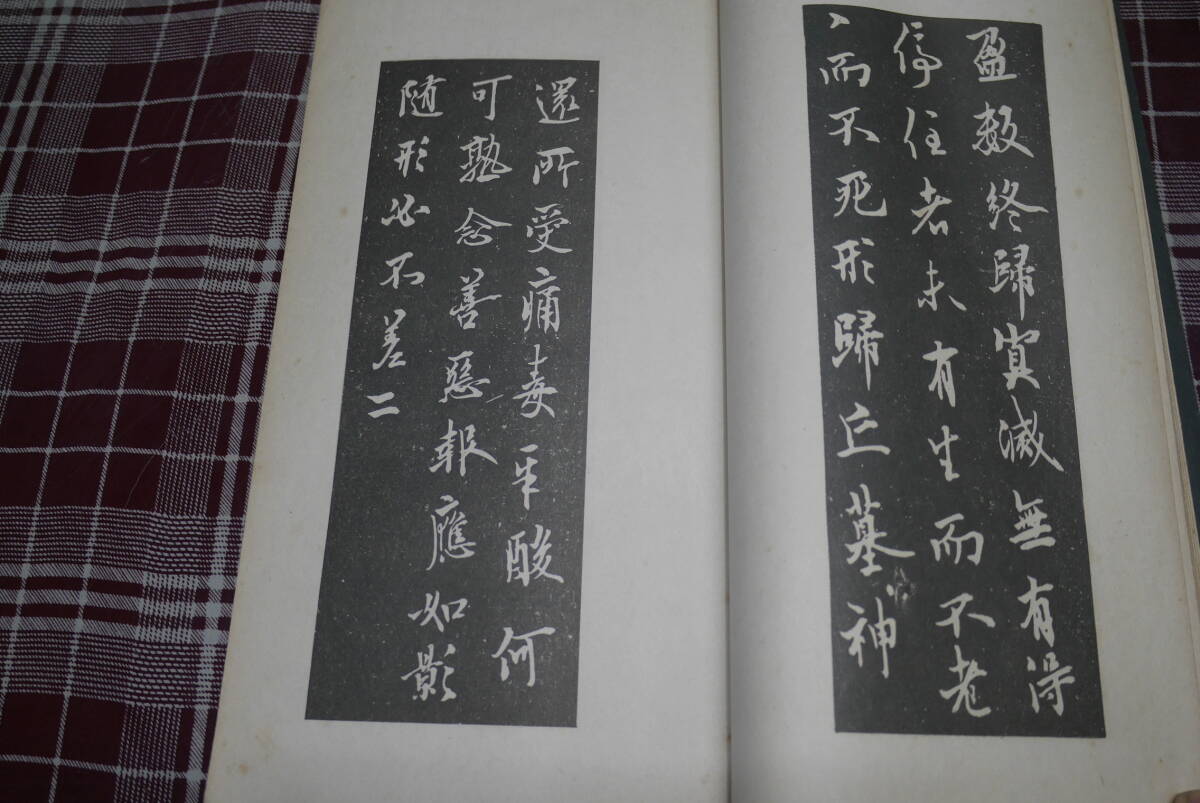 盈数終歸冥滅無有得
停住者未有生而不老
〻而不死形歸丘墓神
還所受痛毒辛酸何
可熟念善惡報應如影
随形必不差二